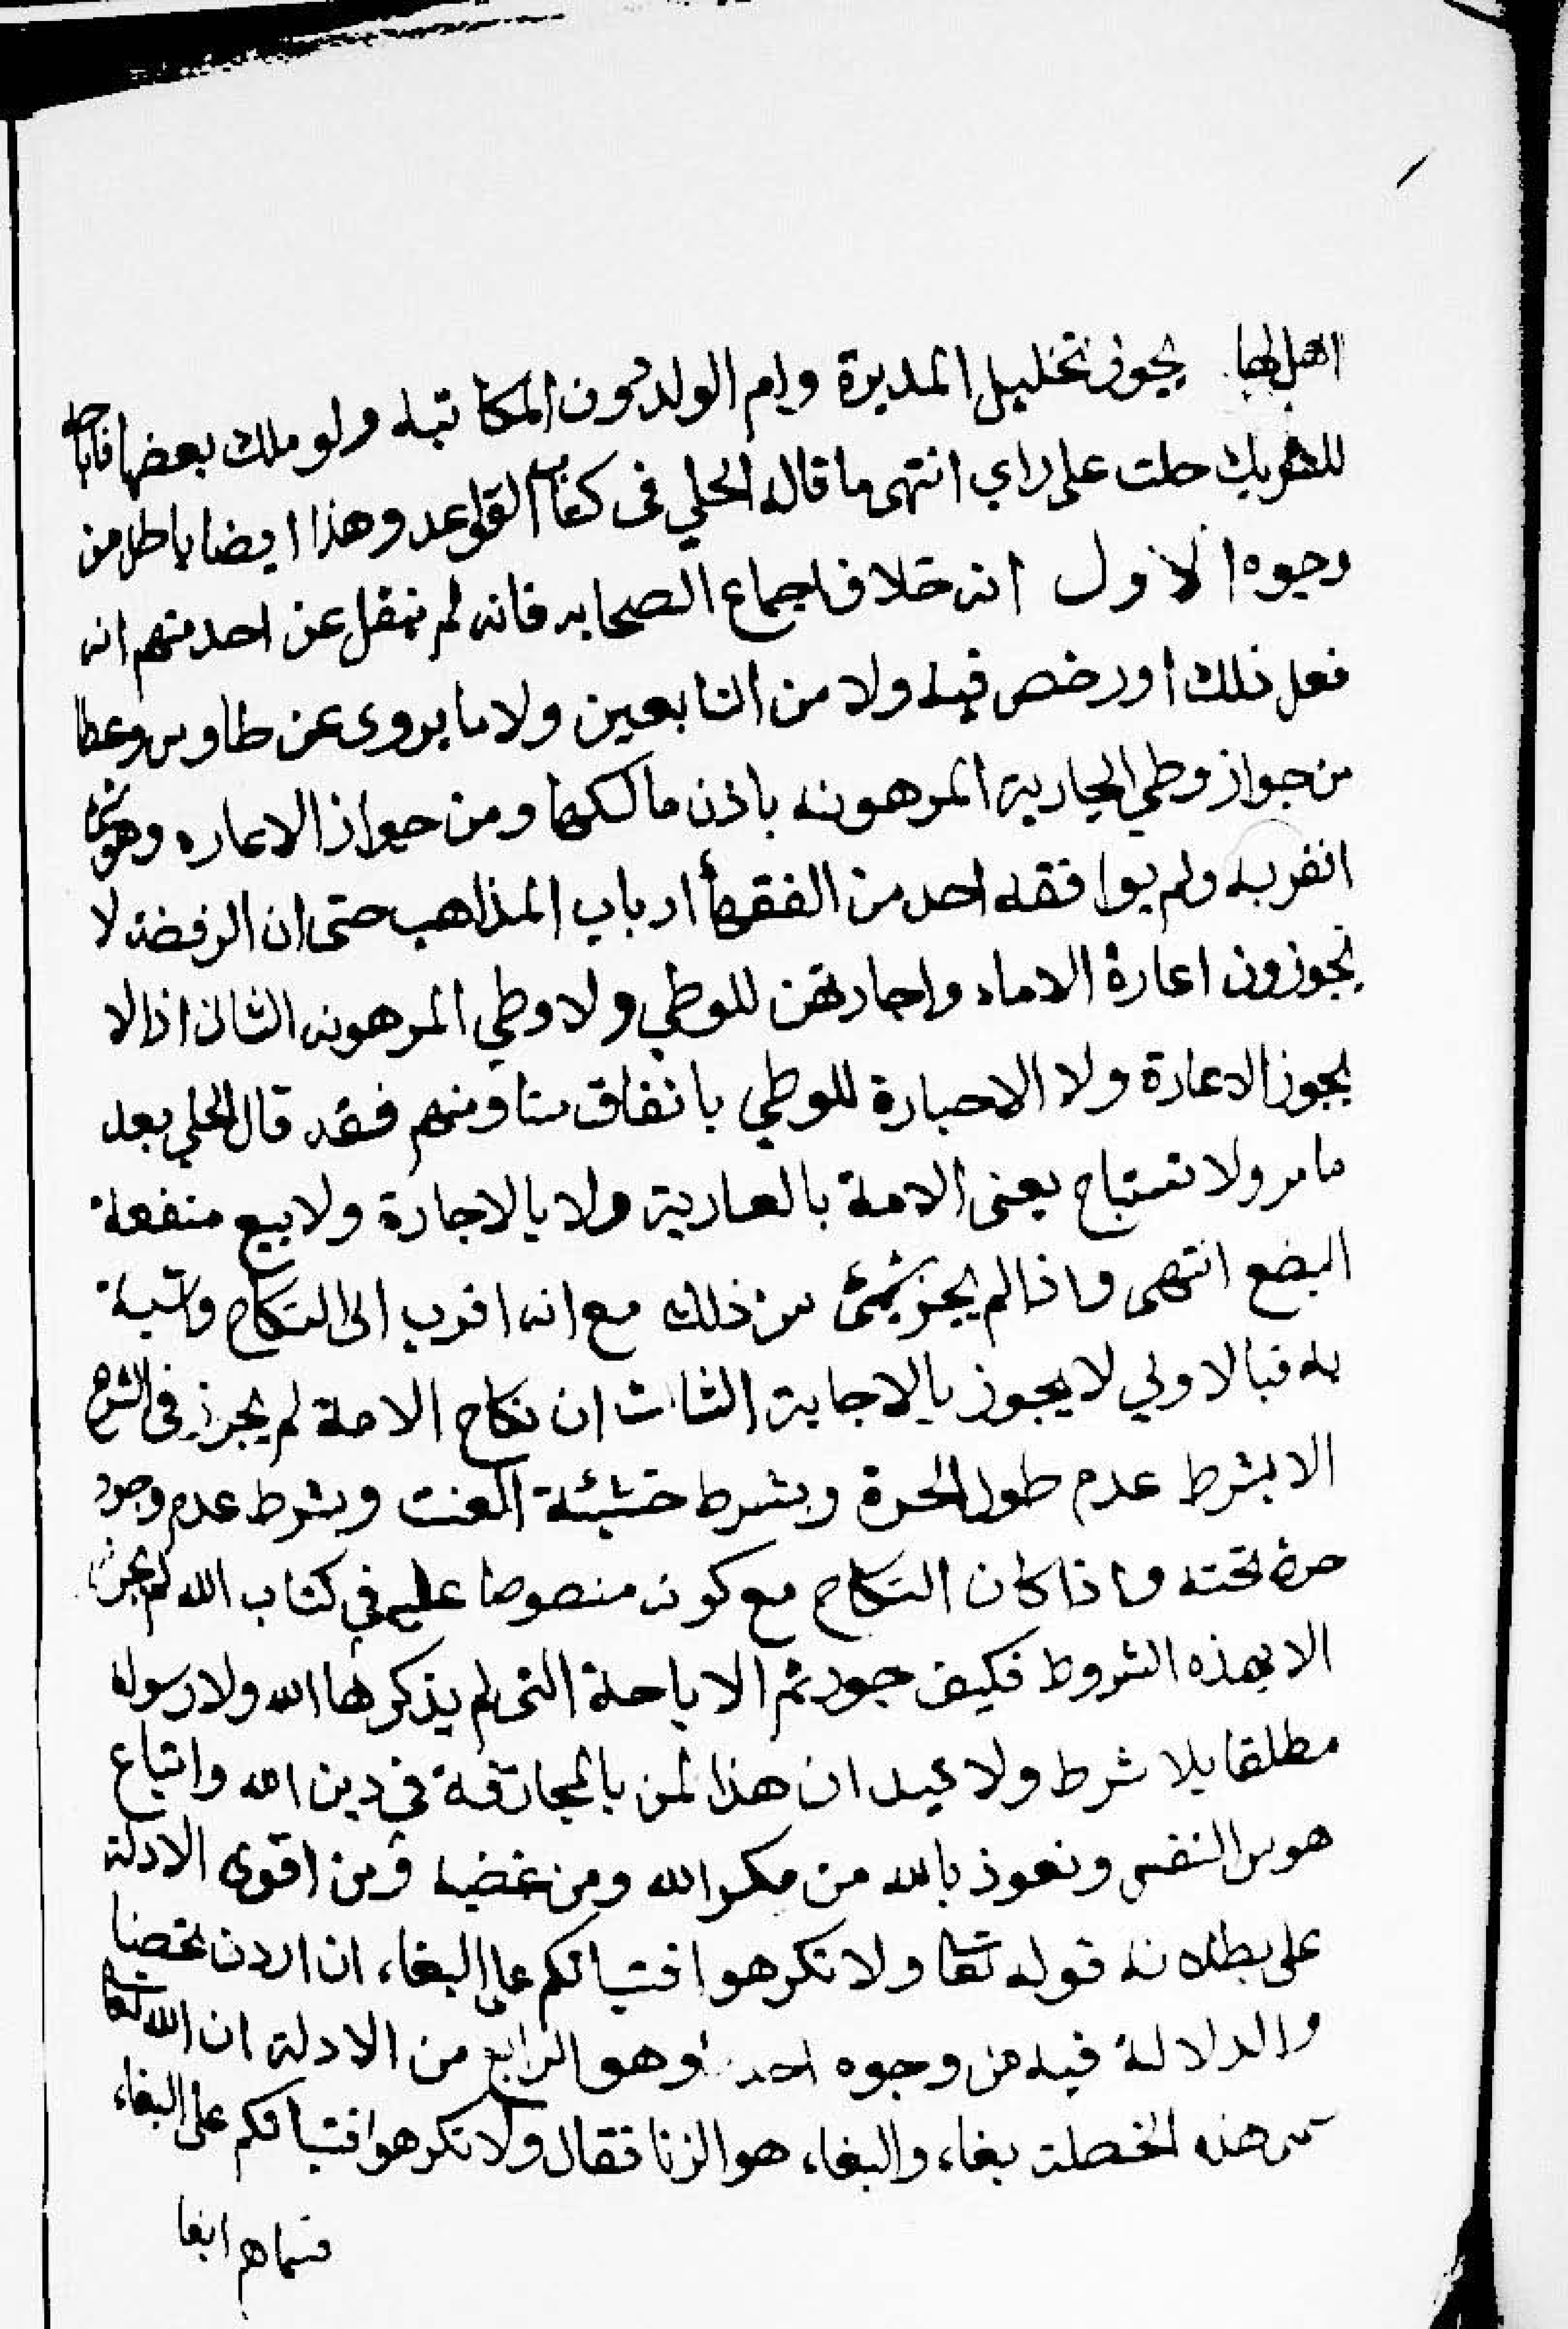 اهل لها يجوز تحليل المدبرة وام الولد دون المكاتبه ولو ملك بعضها فاباحته
للشريك حلت على راي انتهى ما قاله الحلي في كتاب القواعد وهذا ايضا باطل من
وجوه الاول انه خلاف اجماع الصحابه فانه لم ينقل عن احد منهم انه
فعل ذلك او رخص فيه ولا من التابعين ولا ما يروى عن طاوس وعطا
من جواز وطي الجارية المرهونه باذن مالكها ومن جواز الاعاره وهو شي
انفر به ولم يوافقه احد من الفقهأ ارباب المذاهب حتى ان الرفضة لا
يجوزون اعارة الاماء واجارتهن للوطي ولا وطي المرهونه الثاني اذا لا
يجوز الاعارة ولا الاجارة للوطي باتفاق منا ومنهم فقد قال الحلي بعد
ما مر ولا تستباح يعنى الامة بالعارية ولا بالاجارة ولا بيع منفعة
البضع انتهى واذا لم يجز شيئ من ذلك مع انه اقرب الى النكاح واشبه
به فبالاولي لا يجوز بالاجابة الثالث ان نكاح الامة لم يجز في الشرع
الا بشرط عدم طول الحرة وبشرط خشيئة العنت وبشرط عدم وجود
حرة تحته واذا كان النكاح مع كونه منصوصا عليه في كتاب الله لم يجز
الا بهذه الشروط فكيف جوزتم الاباحة التى لم يذكرها الله ولا رسوله
مطلقا بلا شرط ولا عيد ان هذا لمن بالمجازفة في دين الله واتباع
هوس النفس ونعوذ بالله من مكر الله ومن غضبه ومن اقوى الادلة
على بطلانه قوله تعا ولا تكرهوا فتياتكم على البغاء ان اردن تحصنا
والدلالة فيه من وجوه احد وهو الرابع من الادلة ان الله تعا
سمى هذه الخصلة بغاء والبغاء هو الزنا فقال ولا تكرهوا فتياتكم على البغاء
فسماهم ابغا